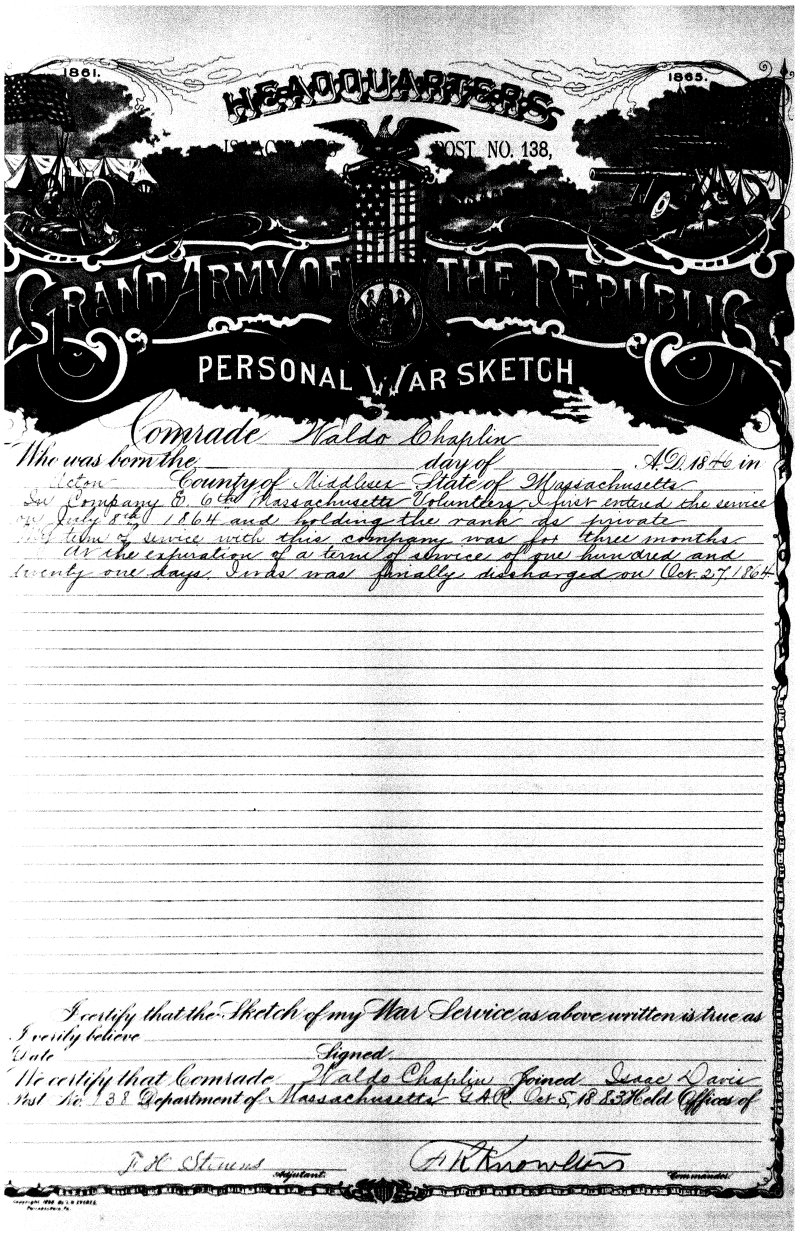 1861.
1865.
HEADQUARTERS
POST NO. 138,
GRAND ARMY OF THE REPUBLIC
PERSONAL WAR SKETCH
Comrade Waldo Chaplin
Who was born the day of A.D. 1846 in
Acton County of Middlesex State of Massachusetts
In Company E 6th Massachusetts Volunteers I first entered the service
on July 8th 1864 and holding the rank as private
My term of service with this company was for three months
At the expiration of a term of service of one hundred and
twenty one days. I was was finally discharged on Oct. 27, 1864
I certify that the Sketch of my War Service as above written is true as
I verily believe
Date Signed
We certify that Comrade Waldo Chaplin Joined Isaac Davis
Post No. 138 Department of Massachusetts G.A.R. Oct 5, 1883 Held Offices of
F H Stevens Adjutant. Knowlton Commander
Copyright 1890 By L.H. EVERTS
Philadelphia, Pa.